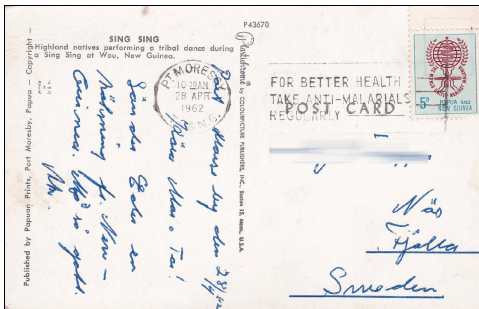 P43670
SING SING
Highland natives performing a tribal dance during
a Sing Sing at Wau, New Guinea.
Published by Papuan Prints, Port Moresby, Papua — Copyright —
MADE IN
U.S.A.
by COLOURPICTURE PUBLISHERS, INC., Boston 15, Mass., U.S.A.
PT. MORESBY
10 AM
28 APR
1962
P.N.G.
FOR BETTER HEALTH
TAKE ANTI-MALARIALS
REGULARLY
POST CARD
5D
PAPUA AND
NEW GUINEA
Port Moresby den 28/4/62
Kära Mor o Far!
Sänder Eder en
hälsning fr. New-
Guinea. Må så gott.
Näs
Fjälla
Sweden